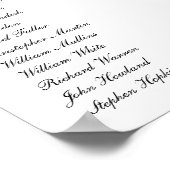 Fuller
Christopher Martin
William Mullins
William White
Richard Warren
John Howland
Stephen Hopki